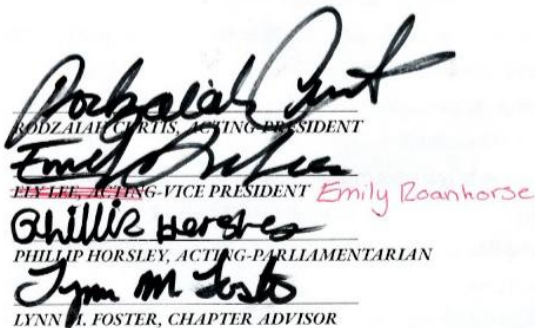 Rodzaiah Curtis
RODZAIAH CURTIS, ACTING-PRESIDENT
ELY LEE, ACTING-VICE PRESIDENT Emily Roanhorse
Phillip Horsley
PHILLIP HORSLEY, ACTING-PARLIAMENTARIAN
Lynn M. Foster
LYNN M. FOSTER, CHAPTER ADVISOR